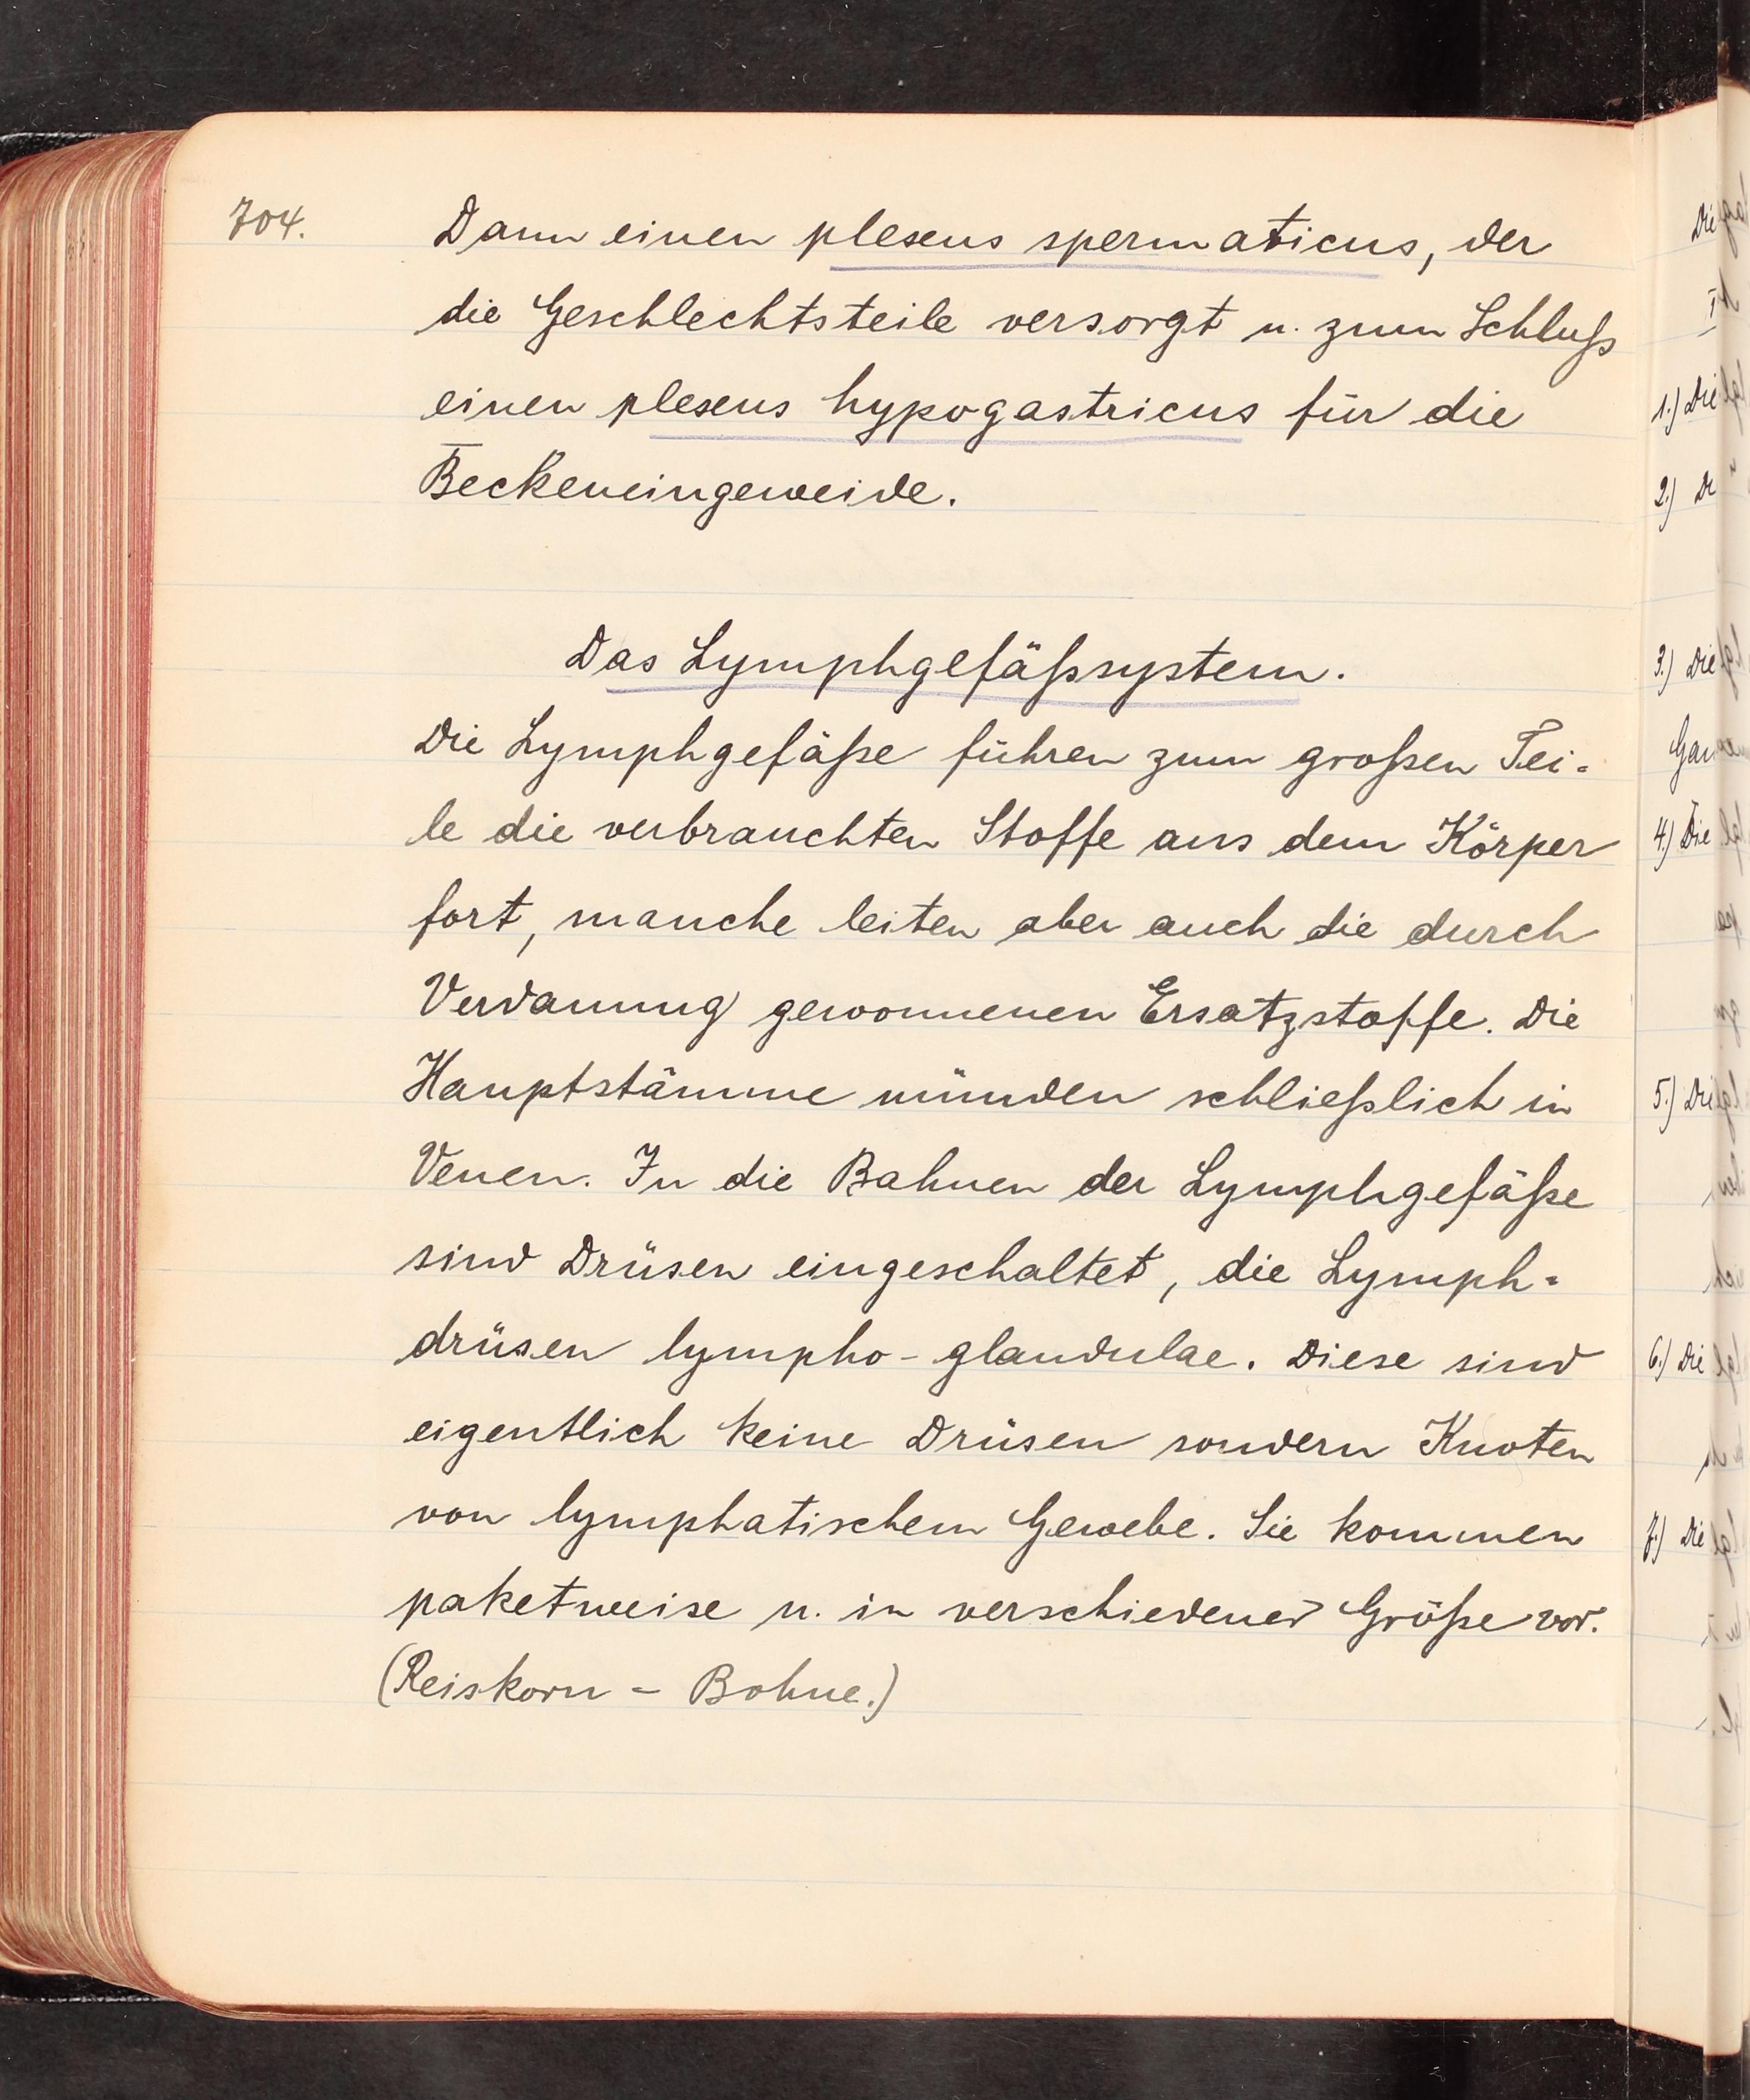 704.
Dann einen plexus spermaticus, der
die Geschlechtsteile versorgt u. zum Schluß
einen plexus hypogastricus für die
Beckeneingeweide.
Das Lymphgefäßsystem.
Die Lymphgefäße führen zum großen Tei-
le die verbrauchten Stoffe aus dem Körper
fort, manche leiten aber auch die durch
Verdauung gewonnenen Ersatzstoffe. Die
Hauptstämme münden schließlich in
Venen. In die Bahnen der Lymphgefäße
sind Drüsen eingeschaltet, die Lymph-
drüsen lympho-glandulae. Diese sind
eigentlich keine Drüsen sondern Knoten
von lymphatischem Gewebe. Sie kommen
paketweise u. in verschiedener Größe vor.
(Reiskorn - Bohne.)
Die
1.) Die
2.)
3.) Die
4.) Die
5.) Die
6.) Die
7.) Die